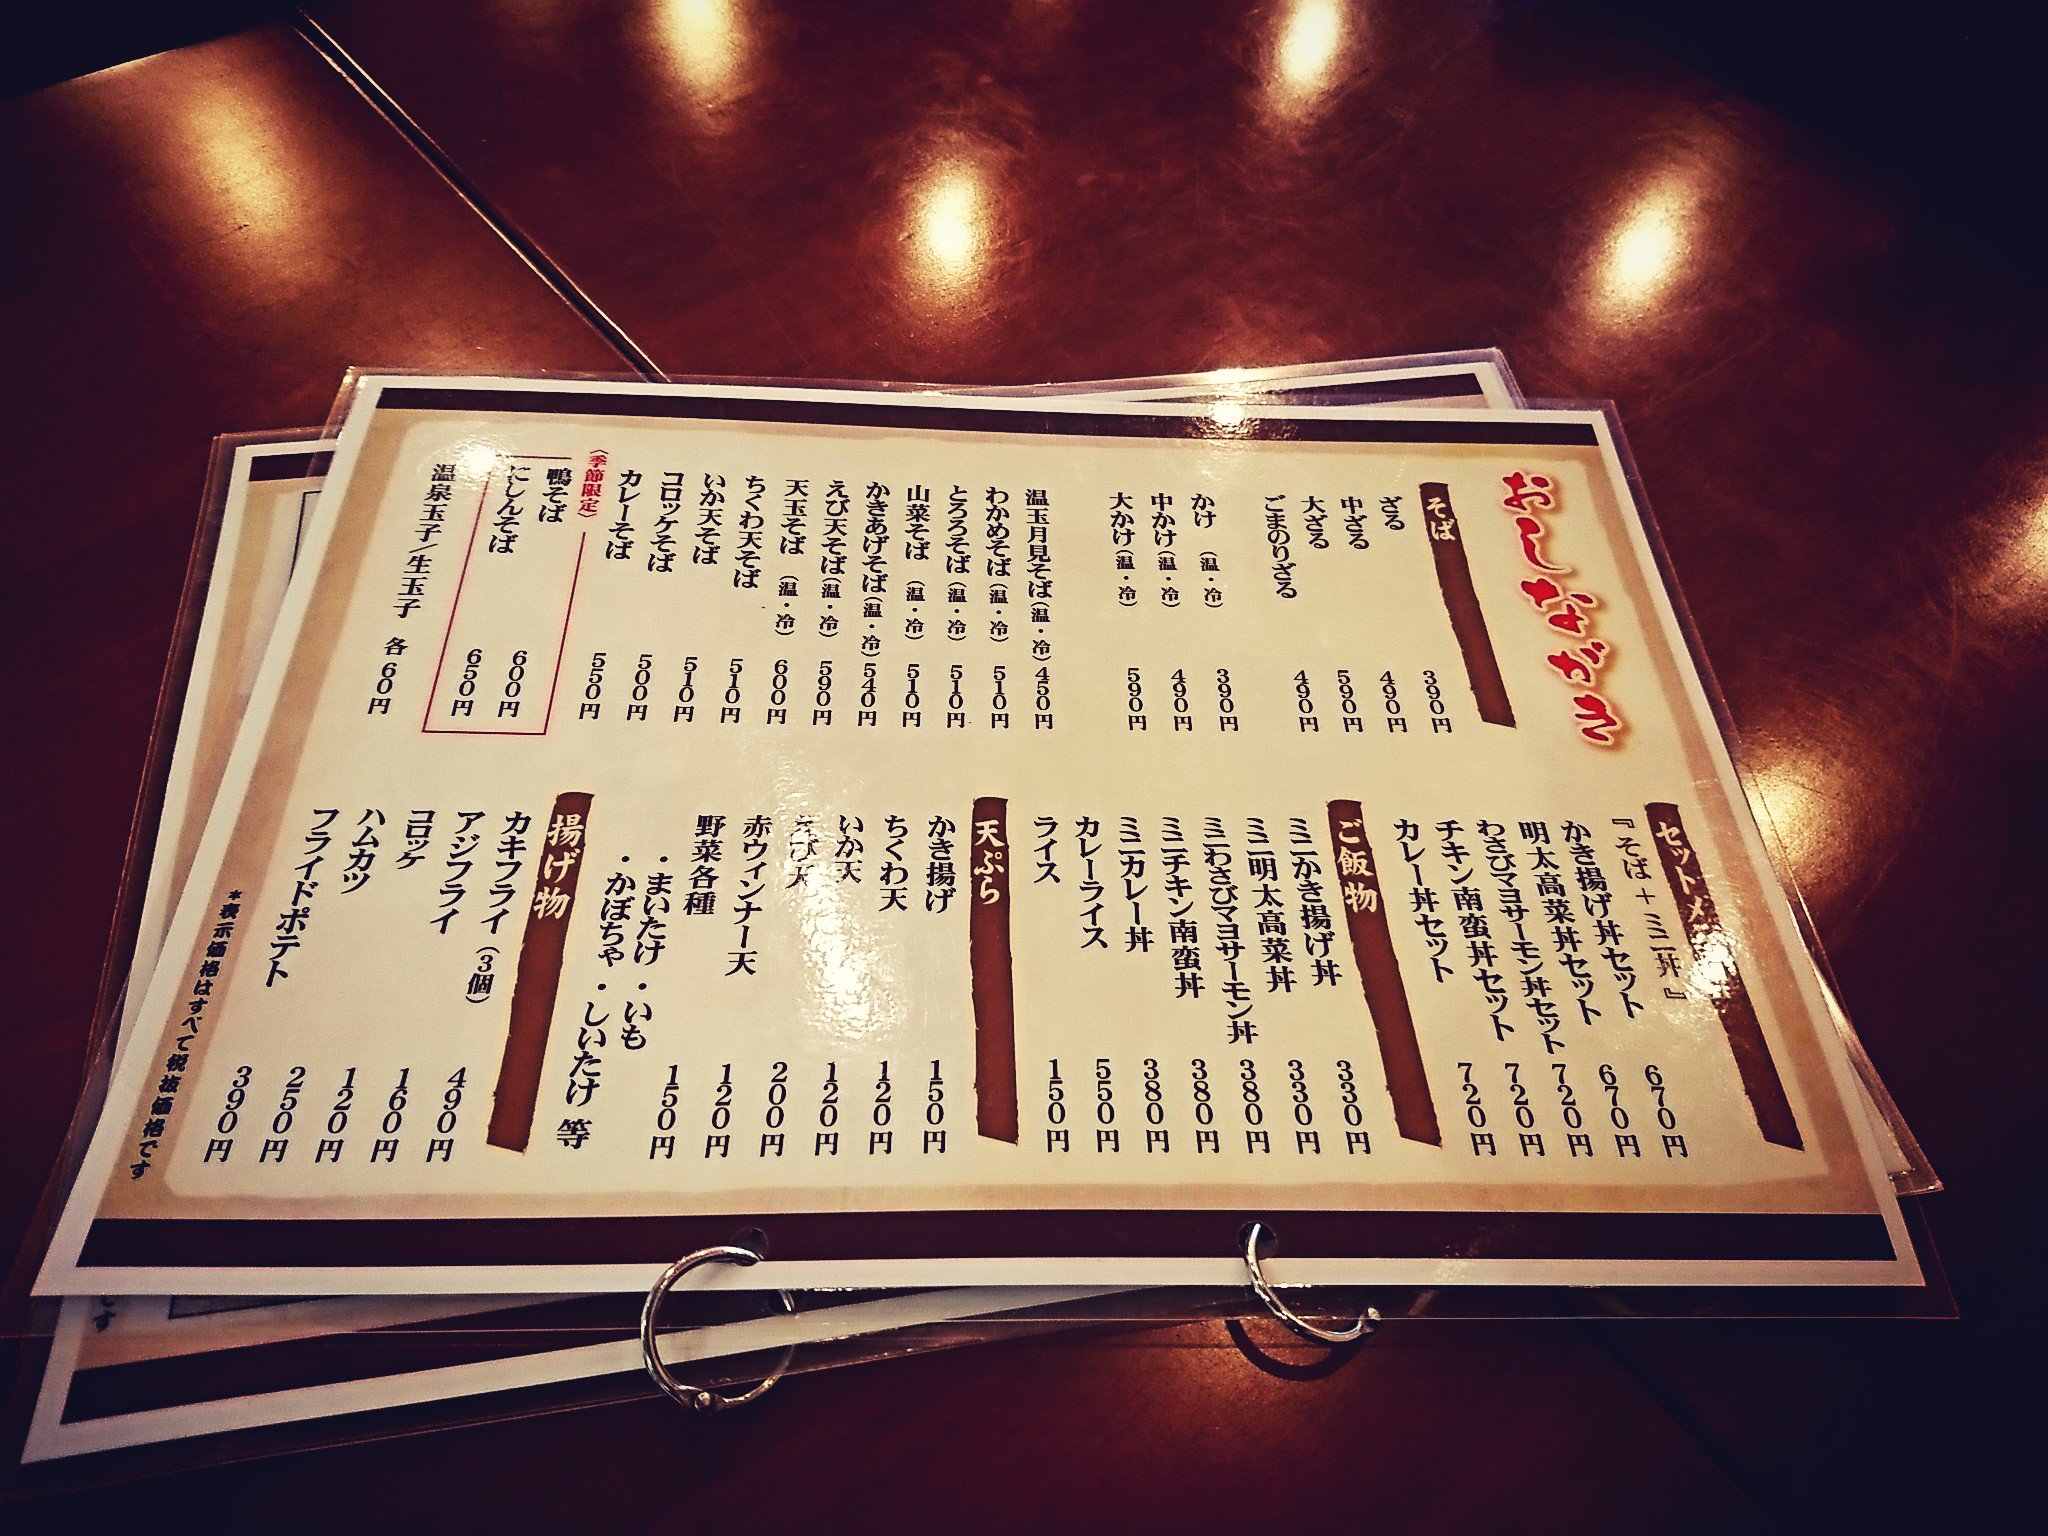 おしながき
そば
ざる 390円
中ざる 490円
大ざる 590円
ごまのりざる 490円
かけ (温・冷) 390円
中かけ(温・冷) 490円
大かけ(温・冷) 590円
温玉月見そば(温・冷) 450円
わかめそば(温・冷) 510円
とろろそば(温・冷) 510円
山菜そば (温・冷) 510円
かきあげそば(温・冷) 540円
えび天そば(温・冷) 590円
天玉そば (温・冷) 600円
ちくわ天そば 510円
いか天そば 510円
コロッケそば 500円
カレーそば 550円
〈季節限定〉
鴨そば 600円
にしんそば 650円
温泉玉子/生玉子 各60円
セット
『そば+ミニ丼』
かき揚げ丼セット 670円
明太高菜丼セット 670円
わさびマヨサーモン丼セット 720円
チキン南蛮丼セット 720円
カレー丼セット 720円
ご飯物
ミニかき揚げ丼 330円
ミニ明太高菜丼 330円
ミニわさびマヨサーモン丼 380円
ミニチキン南蛮丼 380円
ミニカレー丼 380円
カレーライス 550円
ライス 150円
天ぷら
かき揚げ 150円
ちくわ天 120円
いか天 120円
えび天 200円
赤ウィンナー天 120円
野菜各種 150円
・まいたけ ・いも
・かぼちゃ ・しいたけ 等
揚げ物
カキフライ (3個) 490円
アジフライ 160円
コロッケ 120円
ハムカツ 250円
フライドポテト 390円
*表示価格はすべて税抜価格です
です